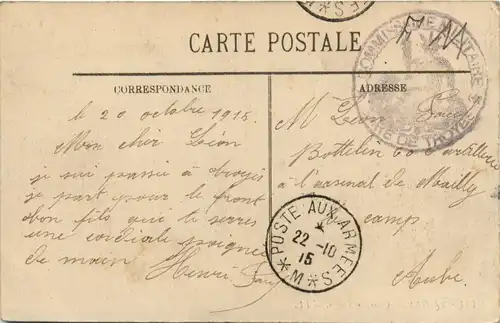 CARTE POSTALE
CORRESPONDANCE
le 20 octobre 1915
Mon cher Léon
je sui passée à troyes
je part pour le front
bon fils qui te serres
une cordiale poignée
de main Henri
ADRESSE
M Léon
60e artillerie
à l'arsenal de Mailly
camp
Aube
COMMISSAIRE MILITAIRE
DE TROYES
POSTE AUX ARMEES
22 -10
15
* M *